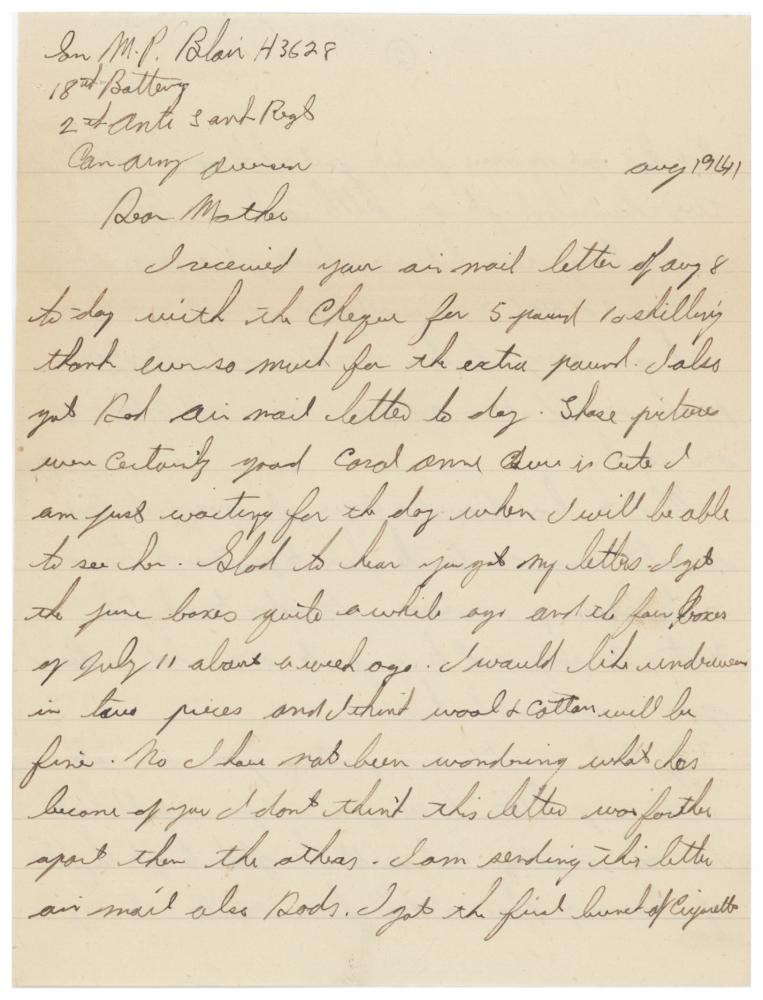 Gnr M.P. Blair H3628
18th Battery
2nd Anti Tank Regt
Can Army Overseas
Aug 1941
Dear Mother
I received your air mail letter of Aug 8
to-day with the Cheque for 5 pound 10 shilling
thank ever so much for the extra pound. I also
got Dad air mail letter to day. Those pictures
were certainly good Carol Anne is Cute I
am just waiting for the day when I will be able
to see her. Glad to hear you got my letters. I got
the June boxes quite a while ago and the four boxes
of July 11 about a week ago. I would like underwear
in two pieces and I think wool & Cotton will be
fine. No I have not been wondering what has
become of you I don't think this letter was farther
apart then the others. I am sending this letter
air mail also Dads. I got the first bunch of Cigarette